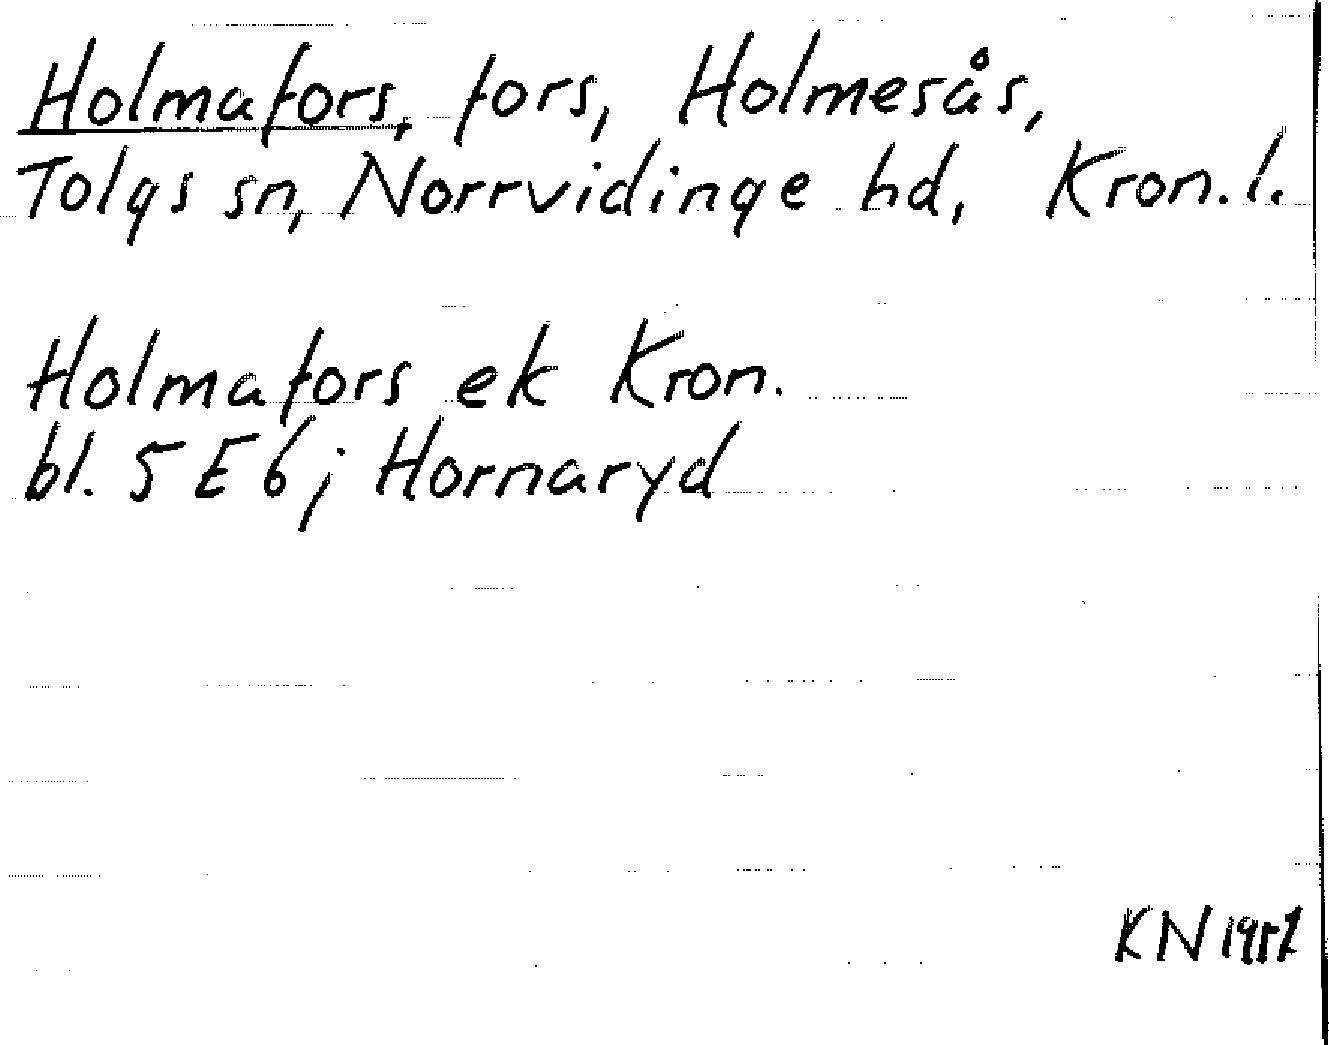 Holmafors, fors, Holmesås,
Tolgs sn, Norrvidinge hd, Kron. l.
Holmafors ek Kron.
bl. 5 E 6 j Hornaryd
KN